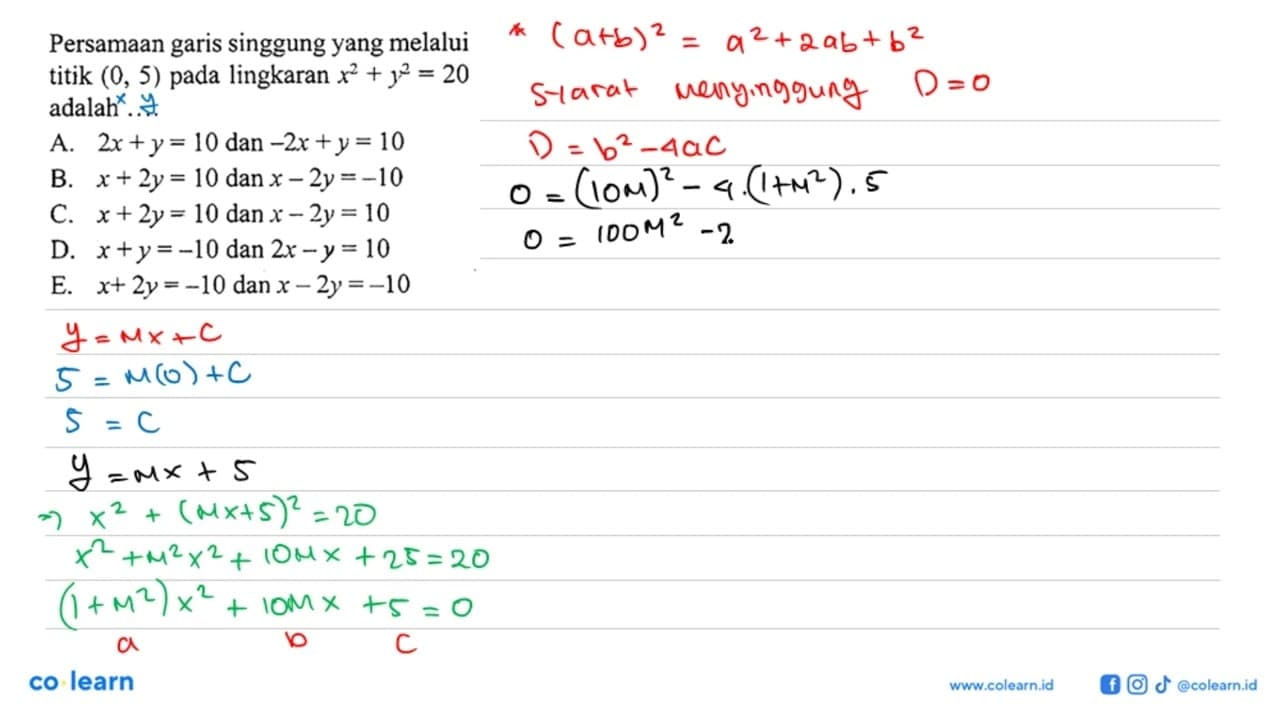 Persamaan garis singgung yang melalui
titik (0, 5) pada lingkaran x² + y² = 20
adalah ...
x y
A. 2x + y = 10 dan –2x + y = 10
B. x + 2y = 10 dan x – 2y = –10
C. x + 2y = 10 dan x – 2y = 10
D. x + y = –10 dan 2x – y = 10
E. x+ 2y = –10 dan x – 2y = –10
y = Mx + C
5 = M(0) + C
5 = C
y = Mx + 5
=> x² + (Mx+5)² = 20
x² + M²x² + 10Mx + 25 = 20
(1 + M²)x² + 10Mx + 5 = 0
a b c
* (a+b)² = a² + 2ab + b²
Syarat menyinggung D = 0
D = b² - 4ac
0 = (10M)² - 4.(1+M²).5
0 = 100M² - 2
co·learn
www.colearn.id
@colearn.id